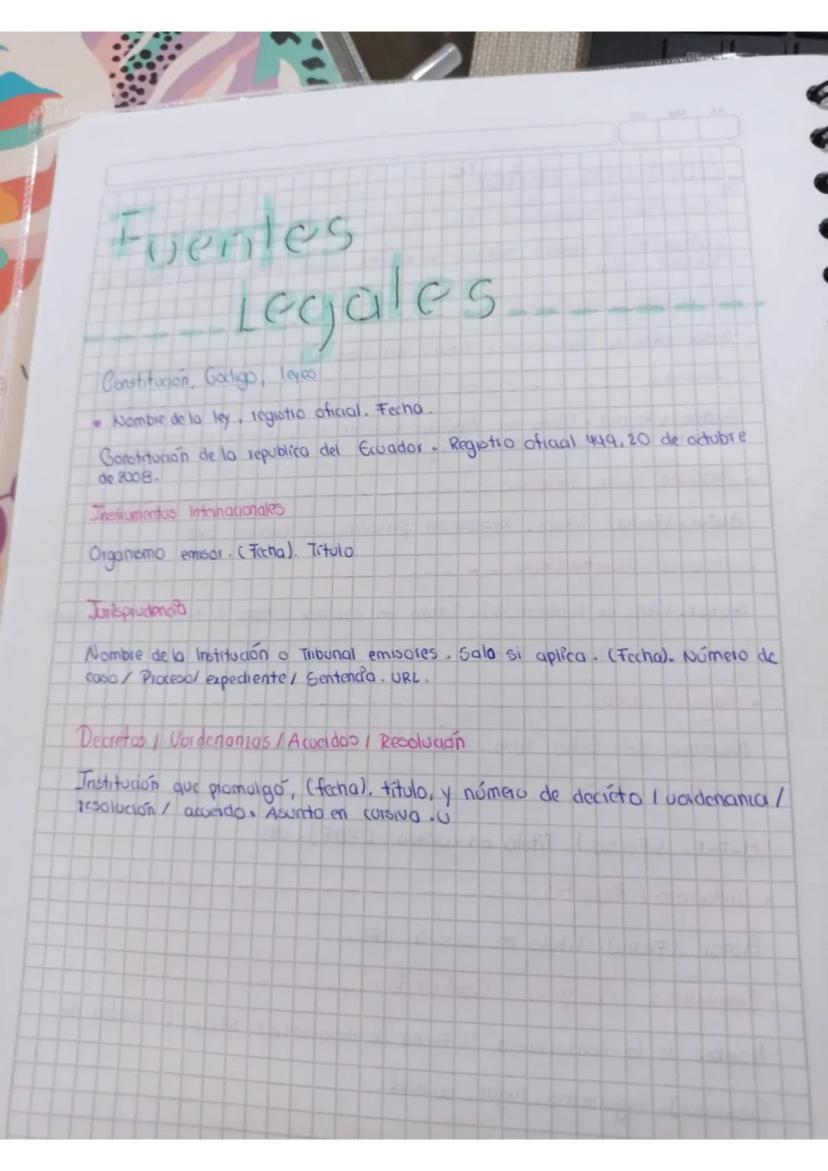 Fuentes
Legales
Constitución, Código, leyes
• Nombre de la ley, registro oficial. Fecha.
Constitución de la republica del Ecuador. Registro oficial 449, 20 de octubre
de 2008.
Instrumentos Internacionales
Organismo emisor. (Fecha). Título
Jurisprudencia
Nombre de la Institución o Tribunal emisores. Sala si aplica. (Fecha). Número de
caso / Proceso / expediente / Sentencia. URL.
Decretos / / Acuerdos / Resolución
Institución que promulgó, (fecha), título, y número de decreto / /
resolución / acuerdo. Asunto en cursiva.